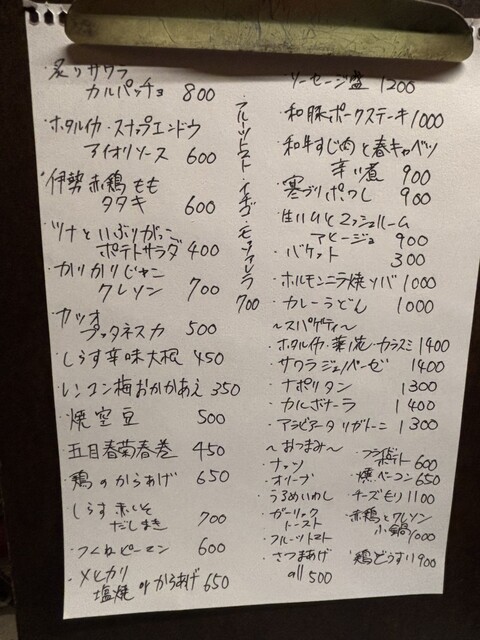 ・炙りサワラ
カルパッチョ 800
・ホタルイカ・スナップエンドウ
アイオリソース 600
・伊勢赤鶏もも
タタキ 600
・ツナといぶりがっこ
ポテトサラダ 400
・かりかりじゃこ
クレソン 700
・カツオ
プッタネスカ 500
・しらす辛味大根 450
・レンコン梅おかかあえ 350
・焼空豆 500
・五目春菊春巻 450
・鶏のからあげ 650
・しらす赤しそ
だしまき 700
・つくねピーマン 600
・メヒカリ
塩焼 or からあげ 650
・フルーツトマト・イチゴ・モッツァレラ 700
・ソーセージ盛 1200
・和豚ポークステーキ 1000
・和牛すじ肉と春キャベツ
辛い煮 900
・寒ブリポワレ 900
・生ハムとマッシュルーム
アヒージョ 900
・バケット 300
・ホルモンニラ焼ソバ 1000
・カレーうどん 1000
〜スパゲティ〜
・ホタルイカ・菜ノ花・カラスミ 1400
・サワラジェノベーゼ 1400
・ナポリタン 1300
・カルボナーラ 1400
・アラビアータリガトーニ 1300
〜おつまみ〜
・ナッツ
・オリーブ
・うるめいわし
・ガーリック
トースト
・フルーツトマト
・さつまあげ
all 500
・フライド
ポテト 600
・燻ベーコン 650
・チーズモリ 1100
・赤鶏とクレソン
小鍋 1000
・鶏ぞうすい 900